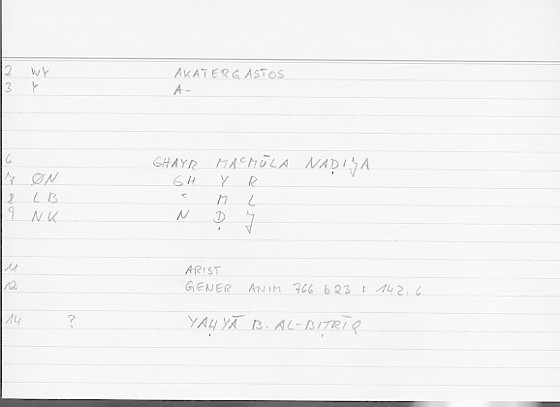 2 WY AKATERGASTOS
3 Y A-
6 GHAYR MAʿMŪLA NAḌIJA
7 ØN GH Y R
8 LB ʿ M L
9 NK N Ḍ J
11 ARIST
12 GENER ANIM 766 b 23 ; 142.6
14 ? YAḤYĀ B. AL-BIṬRĪQ